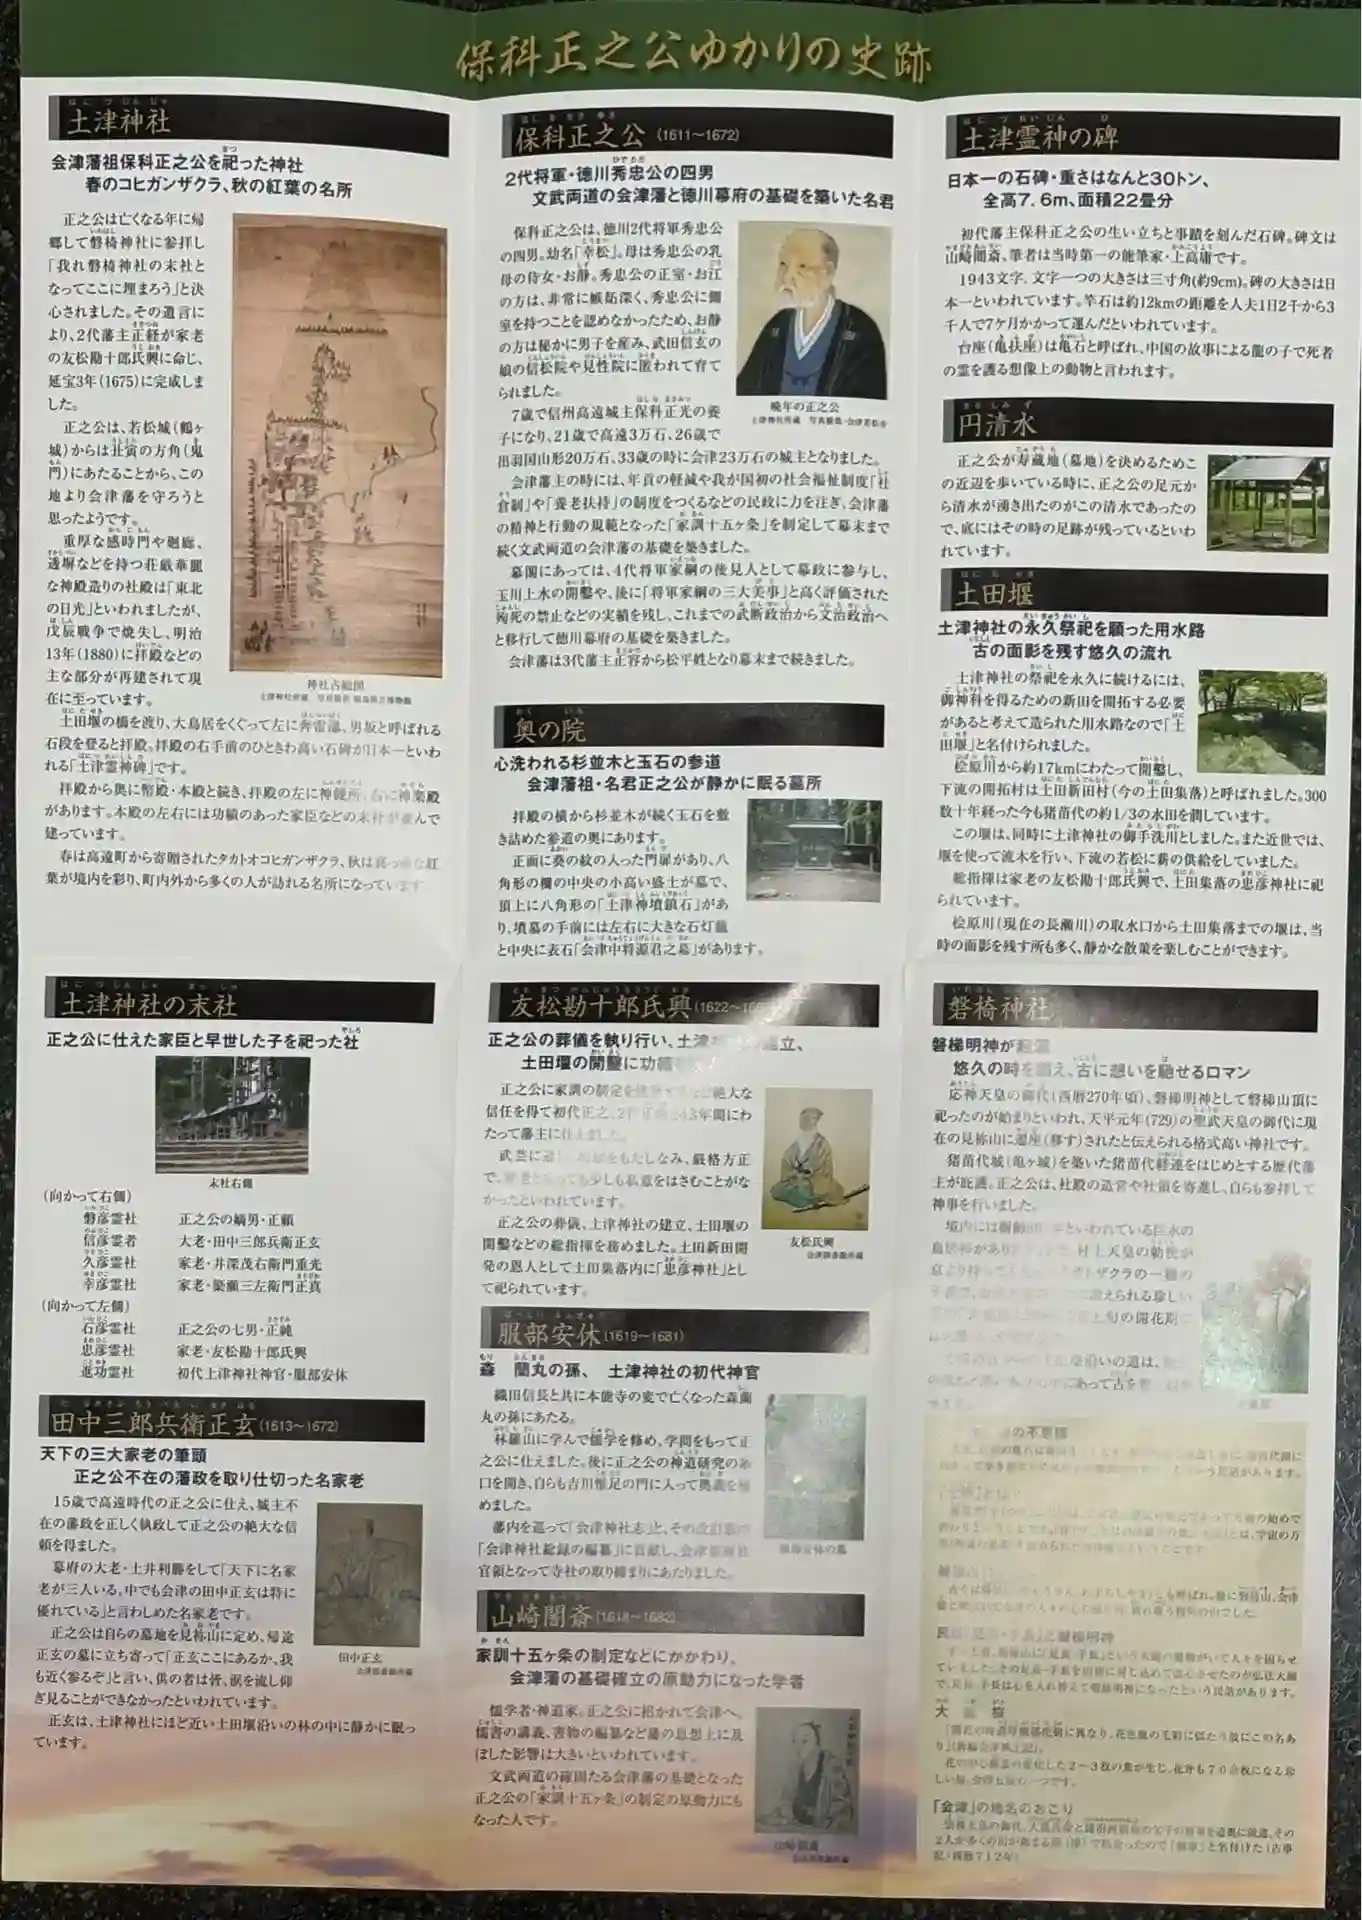 保科正之公ゆかりの史跡
はにつじんじゃ
土津神社
会津藩祖保科正之公を祀った神社
春のコヒガンザクラ、秋の紅葉の名所
正之公は亡くなる年に帰
郷して磐椅神社に参拝し
「我れ磐椅神社の末社と
なってここに埋まろう」と決
心されました。その遺言に
より、2代藩主正経が家老
の友松勘十郎氏興に命じ、
延宝3年(1675)に完成しま
した。
正之公は、若松城(鶴ヶ
城)からは丑寅の方角(鬼
門)にあたることから、この
地より会津藩を守ろうと
思ったようです。
重厚な感時門や廻廊、
透塀などを持つ荘厳華麗
な神殿造りの社殿は「東北
の日光」といわれましたが、
戊辰戦争で焼失し、明治
13年(1880)に拝殿などの
主な部分が再建されて現
在に至っています。
神社古絵図
土田堰の橋を渡り、大鳥居をくぐって左に奔雷瀑、男坂と呼ばれる
石段を登ると拝殿。拝殿の右手前のひときわ高い石碑が日本一といわ
れる「土津霊神碑」です。
拝殿から奥に幣殿・本殿と続き、拝殿の左に神饌所、右に神楽殿
があります。本殿の左右には功績のあった家臣などの末社が並んで
建っています。
春は高遠町から寄贈されたタカトオコヒガンザクラ、秋は真っ赤な紅
葉が境内を彩り、町内外から多くの人が訪れる名所になっています。
はにつじんじゃ まっしゃ
土津神社の末社
正之公に仕えた家臣と早世した子を祀った社
末社右側
(向かって右側)
磐彦霊社 正之公の嫡男・正頼
信彦霊者 大老・田中三郎兵衛正玄
久彦霊社 家老・井深茂右衛門重光
幸彦霊社 家老・簗瀬三左衛門正真
(向かって左側)
石彦霊社 正之公の七男・正純
忠彦霊社 家老・友松勘十郎氏興
進功霊社 初代土津神社神官・服部安休
田中三郎兵衛正玄(1613〜1672)
天下の三大家老の筆頭
正之公不在の藩政を取り仕切った名家老
15歳で高遠時代の正之公に仕え、城主不
在の藩政を正しく執政して正之公の絶大な信
頼を得ました。
幕府の大老・土井利勝をして「天下に名家
老が三人いる。中でも会津の田中正玄は特に
優れている」と言わしめた名家老です。
正之公は自らの墓地を見祢山に定め、帰途
正玄の墓に立ち寄って「正玄ここにあるか、我
も近く参るぞ」と言い、供の者は皆、涙を流し仰
ぎ見ることができなかったといわれています。
正玄は、土津神社にほど近い土田堰沿いの林の中に静かに眠っ
ています。
田中正玄
会津図書館所蔵
ほしなまさゆき
保科正之公(1611〜1672)
2代将軍・徳川秀忠公の四男
文武両道の会津藩と徳川幕府の基礎を築いた名君
保科正之公は、徳川2代将軍秀忠公
の四男。幼名「幸松」。母は秀忠公の乳
母の侍女・お静。秀忠公の正室・お江
の方は、非常に嫉妬深く、秀忠公に側
室を持つことを認めなかったため、お静
の方は秘かに男子を産み、武田信玄の
娘の信松院や見性院に匿われて育て
られました。
7歳で信州高遠城主保科正光の養
子になり、21歳で高遠3万石、26歳で
出羽国山形20万石、33歳の時に会津23万石の城主となりました。
晩年の正之公
会津藩主の時には、年貢の軽減や我が国初の社会福祉制度「社
倉制」や「養老扶持」の制度をつくるなどの民政に力を注ぎ、会津藩
の精神と行動の規範となった「家訓十五ヶ条」を制定して幕末まで
続く文武両道の会津藩の基礎を築きました。
幕閣にあっては、4代将軍家綱の後見人として幕政に参与し、
玉川上水の開鑿や、後に「将軍家綱の三大美事」と高く評価された
殉死の禁止などの実績を残し、これまでの武断政治から文治政治へ
と移行して徳川幕府の基礎を築きました。
会津藩は3代藩主正容から松平姓となり幕末まで続きました。
おく いん
奥の院
心洗われる杉並木と玉石の参道
会津藩祖・名君正之公が静かに眠る墓所
拝殿の横から杉並木が続く玉石を敷
き詰めた参道の奥にあります。
正面に葵の紋の入った門扉があり、八
角形の柵の中央の小高い盛土が墓で、
頂上に八角形の「土津神墳鎮石」があ
り、墳墓の手前には左右に大きな石灯籠
と中央に表石「会津中将源君之墓」があります。
友松勘十郎氏興(1622〜
正之公の葬儀を執り行い、土津 立、
土田堰の開鑿に功績
正之公に家訓の制定を 絶大な
信任を得て初代正之、2代 43年間にわ
たって藩主に仕えました。
武芸に をもたしなみ、厳格方正
で、 少しも私意をはさむことがな
かったといわれています。
正之公の葬儀、土津神社の建立、土田堰の
開鑿などの総指揮を務めました。土田新田開
発の恩人として土田集落内に「忠彦神社」とし
て祀られています。
友松氏興
会津図書館所蔵
服部安休(1619〜1681)
森 蘭丸の孫、 土津神社の初代神官
織田信長と共に本能寺の変で亡くなった森蘭
丸の孫にあたる。
林羅山に学んで儒学を修め、学問をもって正
之公に仕えました。後に正之公の神道研究の糸
口を開き、自らも吉川惟足の門に入って奥義を極
めました。
藩内を巡って「会津神社志」と、その改訂版の
「会津神社総録の編纂」に貢献し、会津領神社
官領となって寺社の取り締まりにあたりました。
服部安休の墓
山崎闇斎(1618〜1682)
家訓十五ヶ条の制定などにかかわり、
会津藩の基礎確立の原動力になった学者
儒学者・神道家。正之公に招かれて会津へ。
儒書の講義、書物の編纂など藩の思想上に及
ぼした影響は大きいといわれています。
文武両道の確固たる会津藩の基礎となった
正之公の「家訓十五ヶ条」の制定の原動力にも
なった人です。
山崎闇斎
はにつれいじん ひ
土津霊神の碑
日本一の石碑・重さはなんと30トン、
全高7.6m、面積22畳分
初代藩主保科正之公の生い立ちと事蹟を刻んだ石碑。碑文は
山崎闇斎、筆者は当時第一の能筆家・土高庸です。
1943文字。文字一つの大きさは三寸角(約9cm)。碑の大きさは日
本一といわれています。竿石は約12kmの距離を人夫1日2千から3
千人で7ヶ月かかって運んだといわれています。
台座(亀扶座)は亀石と呼ばれ、中国の故事による龍の子で死者
の霊を護る想像上の動物と言われます。
円清水
正之公が寿蔵地(墓地)を決めるためこ
の近辺を歩いている時に、正之公の足元か
ら清水が湧き出たのがこの清水であったの
で、底にはその時の足跡が残っているといわ
れています。
土田堰
土津神社の永久祭祀を願った用水路
古の面影を残す悠久の流れ
土津神社の祭祀を永久に続けるには、
御神料を得るための新田を開拓する必要
があると考えて造られた用水路なので「土
田堰」と名付けられました。
桧原川から約17kmにわたって開鑿し、
下流の開拓村は土田新田村(今の土田集落)と呼ばれました。300
数十年経った今も猪苗代の約1/3の水田を潤しています。
この堰は、同時に土津神社の御手洗川としました。また近世では、
堰を使って流木を行い、下流の若松に薪の供給をしていました。
総指揮は家老の友松勘十郎氏興で、土田集落の忠彦神社に祀
られています。
桧原川(現在の長瀬川)の取水口から土田集落までの堰は、当
時の面影を残す所も多く、静かな散策を楽しむことができます。
磐椅神社
磐梯明神が
悠久の時を 古に想いを馳せるロマン
応神天皇の御代(西暦270年頃)、磐梯明神として磐梯山頂に
祀ったのが始まりといわれ、天平元年(729)の聖武天皇の御代に現
在の見祢山に遷座(移す)されたと伝えられる格式高い神社です。
猪苗代城(亀ヶ城)を築いた猪苗代経連をはじめとする歴代藩
主が庇護。正之公は、社殿の造営や社領を寄進し、自らも参拝して
神事を行いました。
境内には樹齢 といわれている巨木の
鳥居杉があり 村上天皇の勅使が
京より持って トザクラの一種の
伝えられる珍しい
上旬の開花期
沿いの道は、
あって古を
の不思議
という民話があります。
磐梯明神
大鹿桜
「会津」の地名のおこり